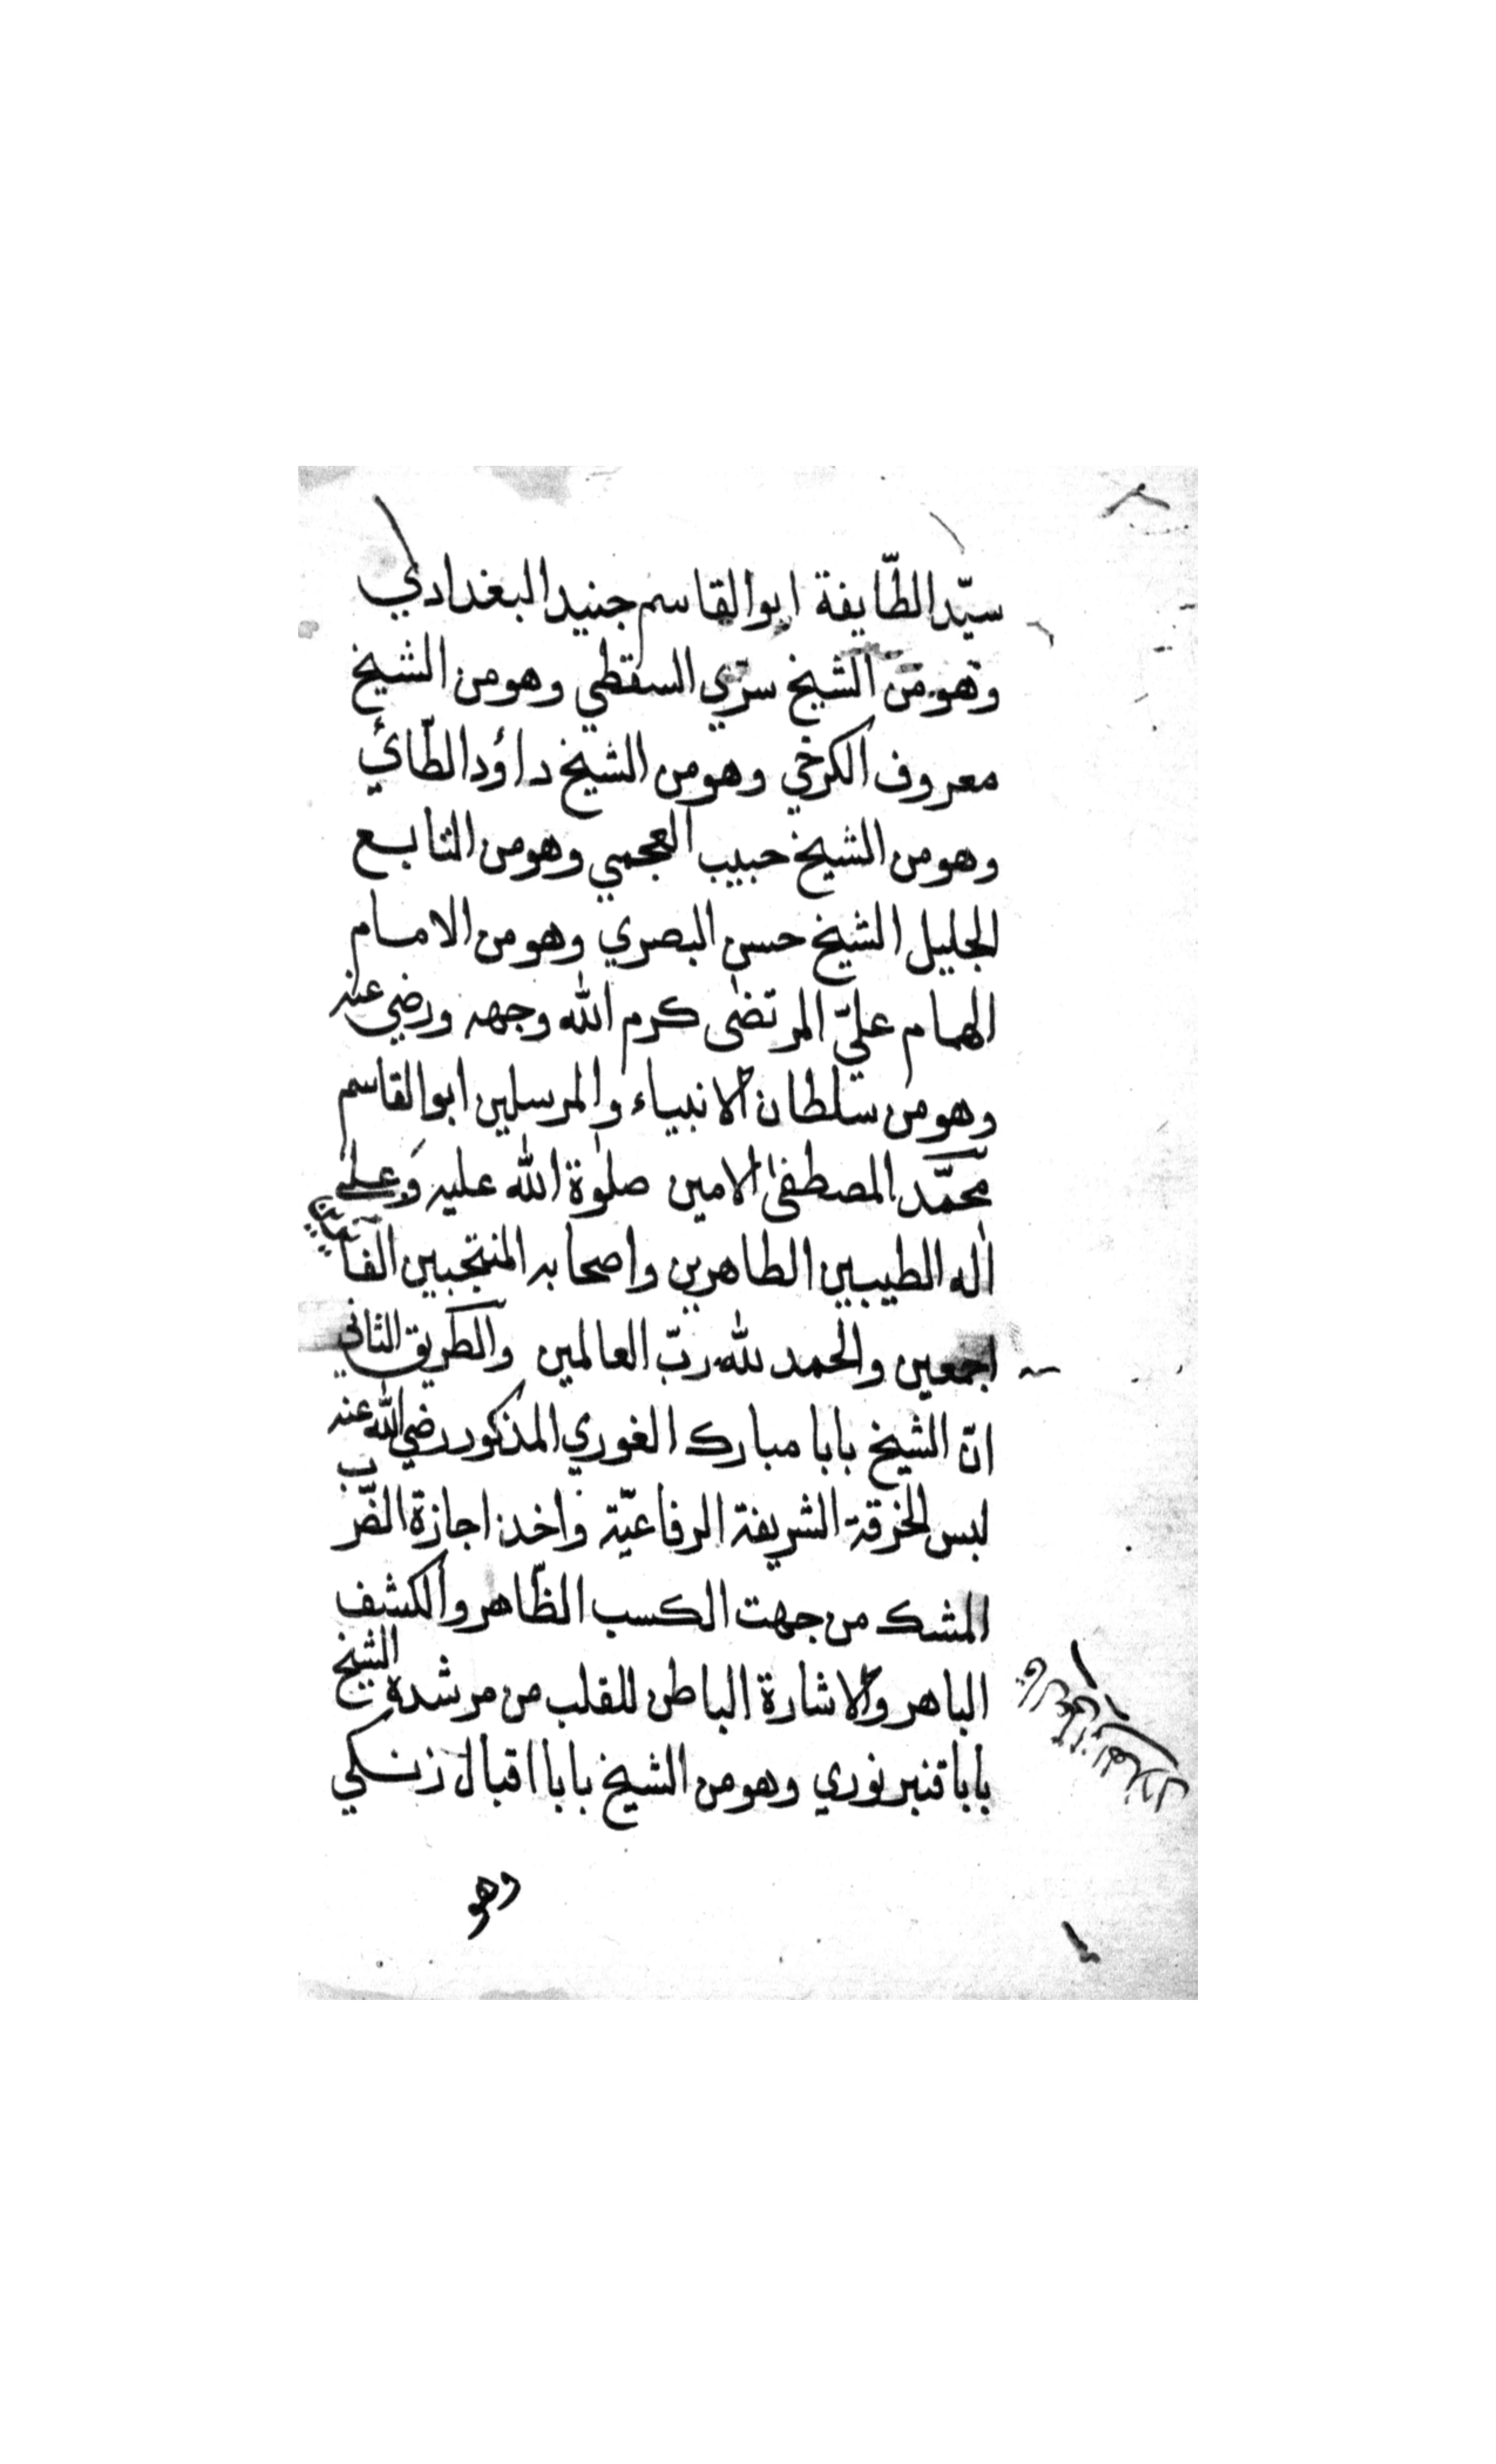 سيّد الطّايفة ابو القاسم جنيد البغدادي
وهو من الشيخ سرّي السقطي وهو من الشيخ
معروف الكرخي وهو من الشيخ داؤد الطّائي
وهو من الشيخ حبيب العجمي وهو من التابع
الجليل الشيخ حسن البصري وهو من الامام
الهمام عليّ المرتضى كرم الله وجهه ورضي عنه
وهو من سلطان الانبياء والمرسلين ابو القاسم
محمّد المصطفىٰ الامين صلوٰة الله عليه وعلى
اٰله الطيبين الطاهرين واصحابه المنتجبين الفايقين
اجمعين والحمد لله ربّ العالمين والطريق الثاني
انّ الشيخ بابا مبارك الغوري المذكور رضي الله عنه
لبس الخرقة الشريفة الرفاعيّة واخذ اجازة الضّرب
المشك من جهت الكسب الظّاهر والكشف
الباهر والاشارة الباطن للقلب من مرشده الشيخ
بابا قنبر نوري وهو من الشيخ بابا اقبال زنكي
وهو